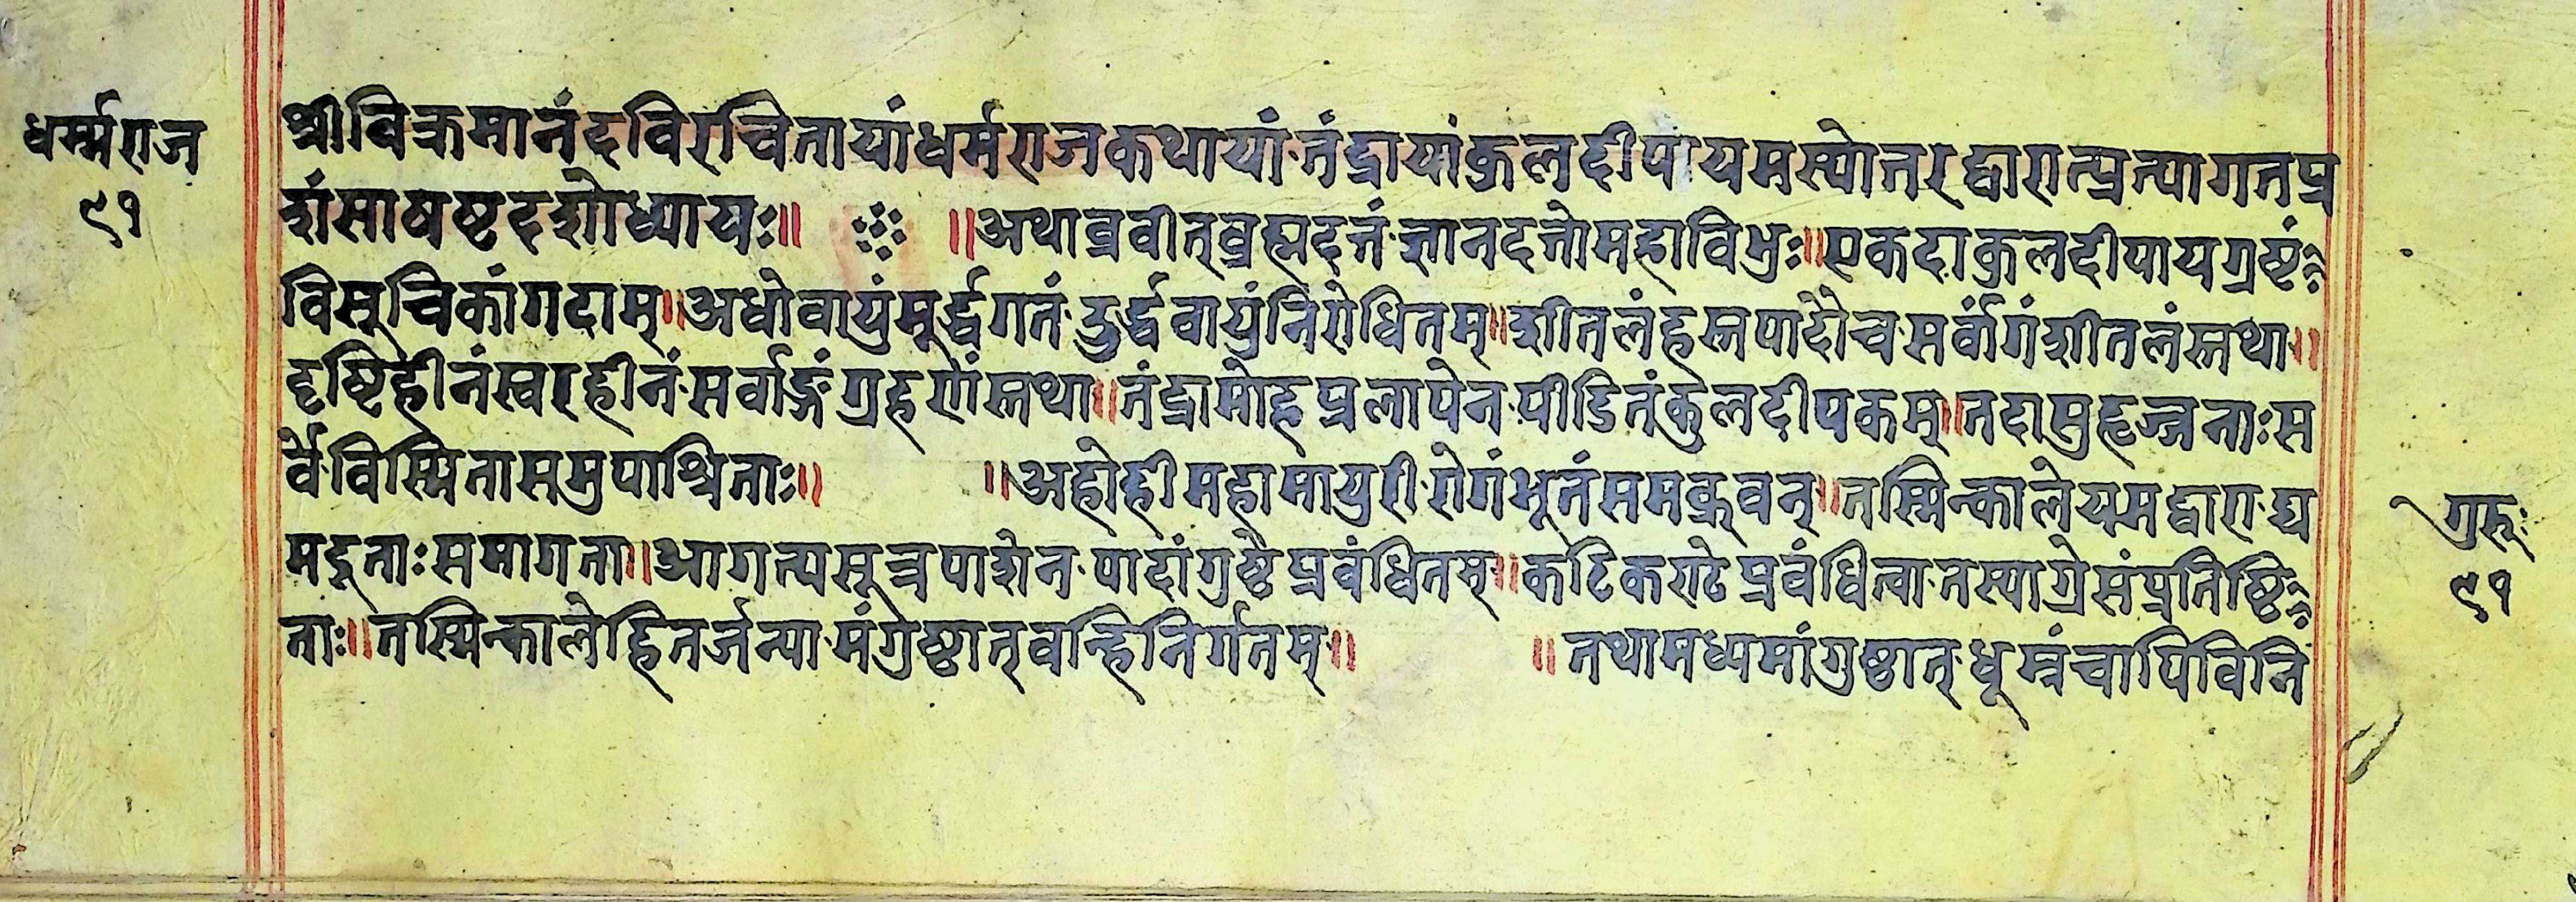 धर्म्मराज
९१
श्रीविक्रमानंदविरचितायांधर्मराजकथायां तंद्रायांकुलदीपायमस्योत्तरद्वारात्प्रत्यागतप्र
शंसाषष्टदशोध्यायः॥ ॥अथाब्रवीत्ब्रह्मदत्तं ज्ञानदत्तोमहाविभुः॥एकदाकुलदीपायग्रष्टं
विसूचिकांगदाम्॥अधोवायुंमूर्द्ध्वगतं दुर्द्ध्ववायुंनिरोधितम्॥शीतलंहस्तपादौच सर्वांगंशीतलंस्तथा॥
दृष्टिहीनंस्वरहीनं सर्वाङ्गंग्रहरोगंस्तथा॥तंद्रामोहप्रलापेन पीडितंकुलदीपकम्॥तदासुहृज्जनाःस
र्वे विस्मितासमुपाश्रिताः॥ ॥अहोहीमहामायुरी रोगंभूतंसमब्रुवन्॥तस्मिन्कालेयमद्वारा द्य
मदूताःसमागता॥आगत्यसूत्रपाशेन पादांगुष्ठैप्रबंधितम्॥कटिकराटेप्रबंधित्वा तस्याग्रेसंप्रतिष्ठि
ताः॥तस्मिन्कालेहितर्जन्या मंगुष्ठात्वन्हिनिर्गतम्॥ ॥तथामध्यमांगुष्ठात् धूम्रंचापिविनि
गुरूः
९१